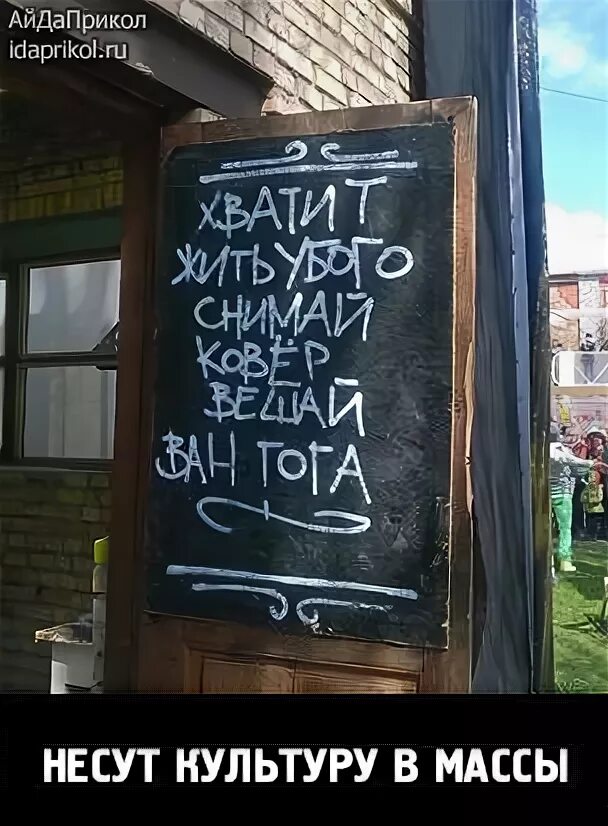 АйДаПрикол
idaprikol.ru
ХВАТИТ
ЖИТЬ УБОГО
СНИМАЙ
КОВЁР
ВЕШАЙ
ВАН ГОГА
НЕСУТ КУЛЬТУРУ В МАССЫ